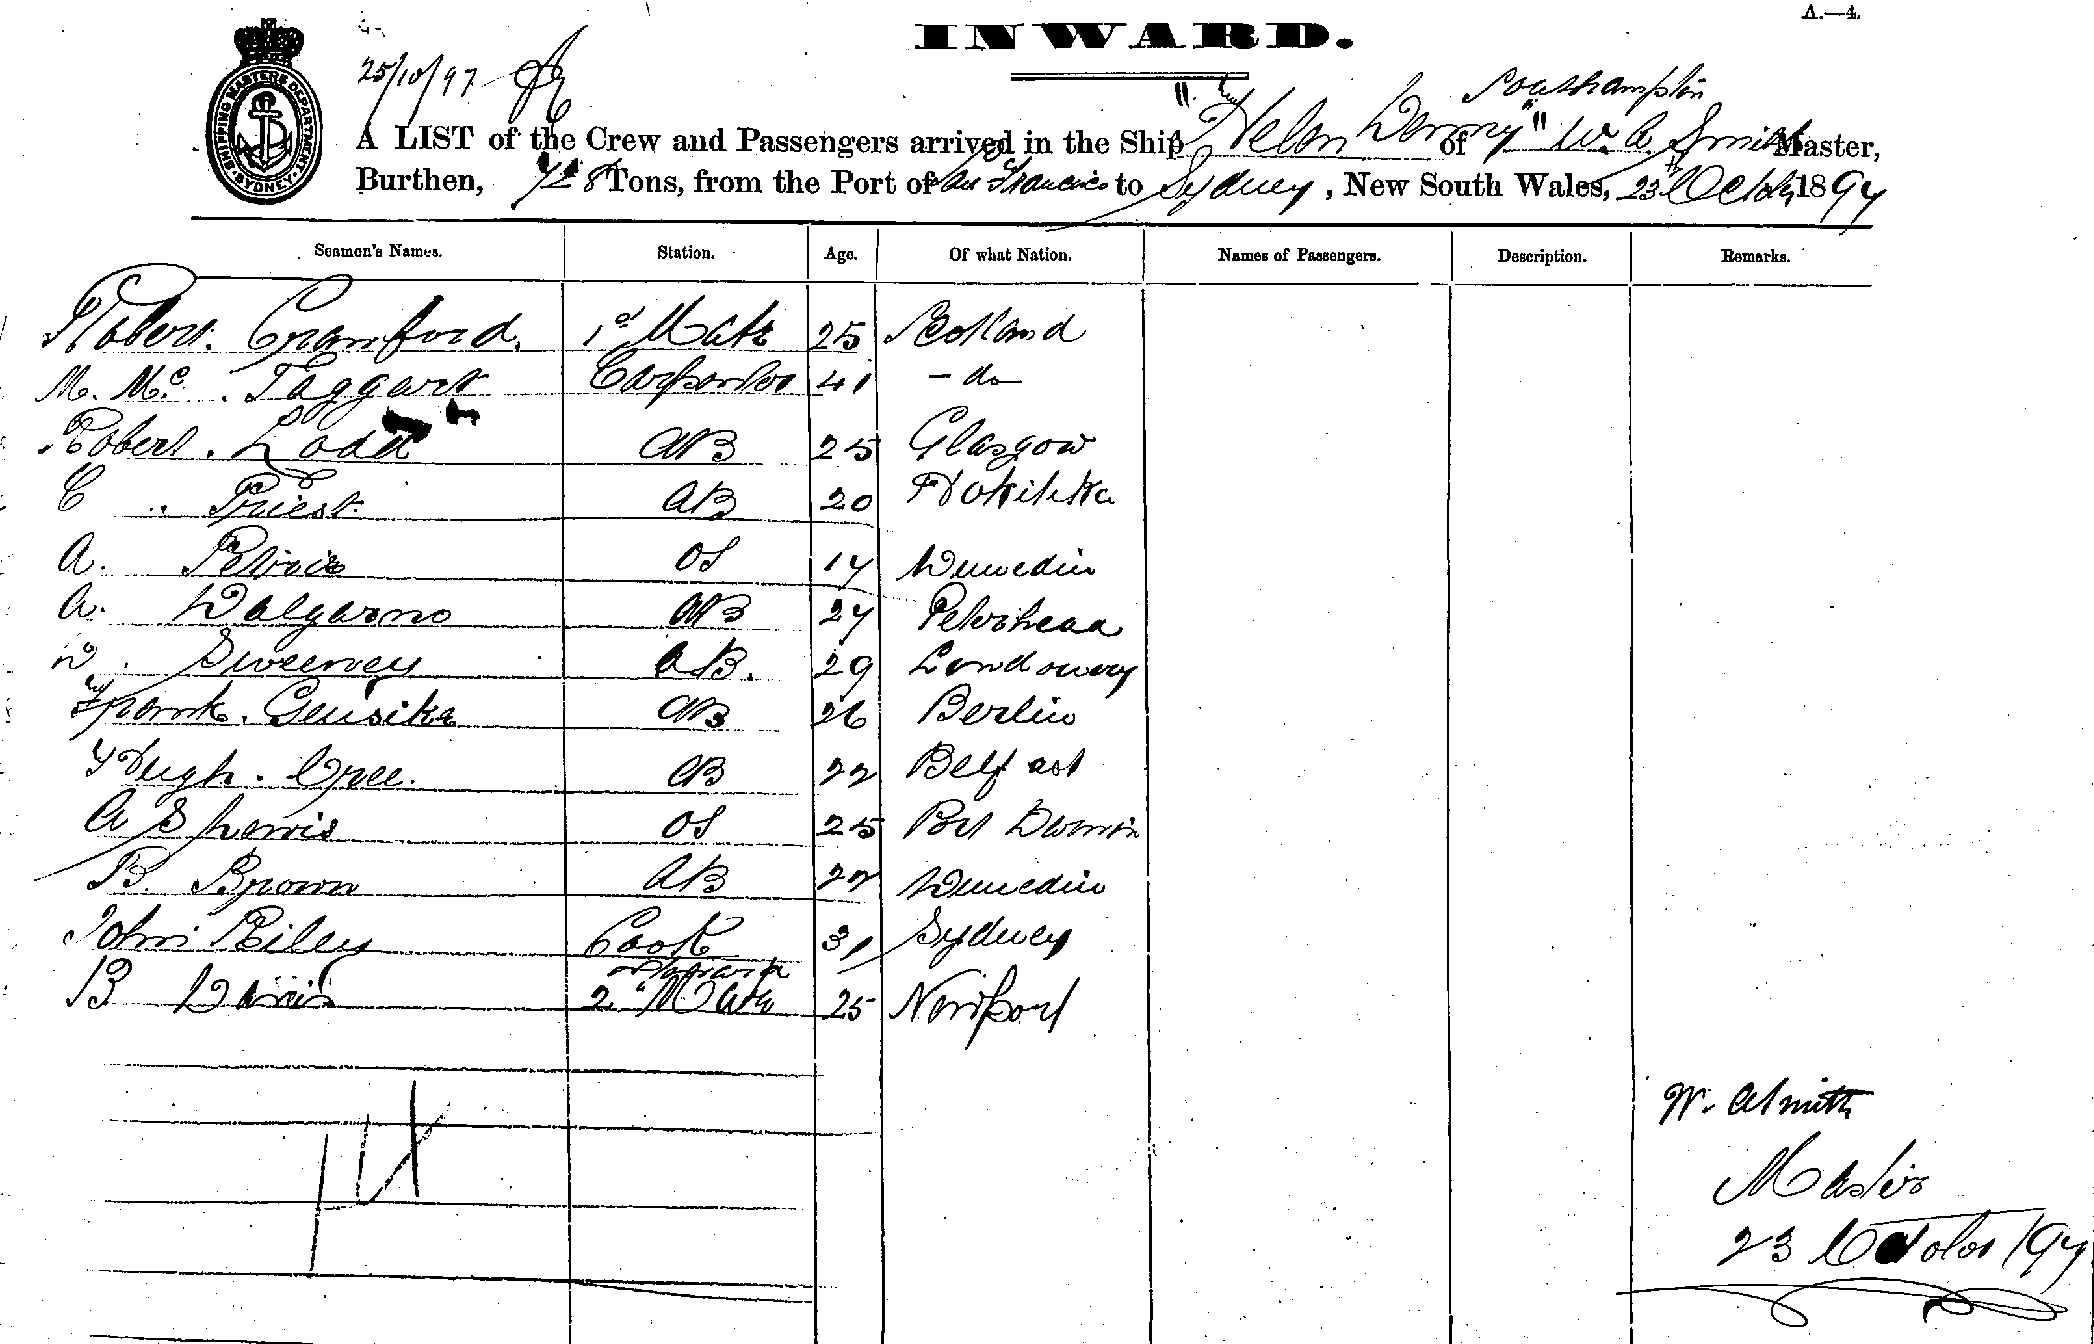 A.—4.
INWARD.
25/10/97
Southampton
SHIPPING MASTERS DEPARTMENT SYDNEY
A LIST of the Crew and Passengers arrived in the Ship "Helen Denny" of W. A. Smith Master,
Burthen, 728 Tons, from the Port of San Francisco to Sydney, New South Wales, 23 October 1897
Seamen's Names. Station. Age. Of what Nation. Names of Passengers. Description. Remarks.
Robert Crawford. 1st Mate 25 Scotland
M. Mc. Taggart Carpenter 41 - do -
Robert. Todd AB 25 Glasgow
C Priest AB 20 Hokitika
A. Petrie OS 17 Dunedin
A. Dalgarno AB 27 Peterhead
D. Sweeney AB. 29 Londonderry
Frank. AB 26 Berlin
Hugh. Cree. AB 22 Belfast
A S Lewis OS 25 Port Darwin
B. Brown AB 22 Dunedin
John Riley Cook 31 Sydney
& Steward
B Davis 2nd Mate 25 Newport
W. A Smith
Master
23 October 1897
14